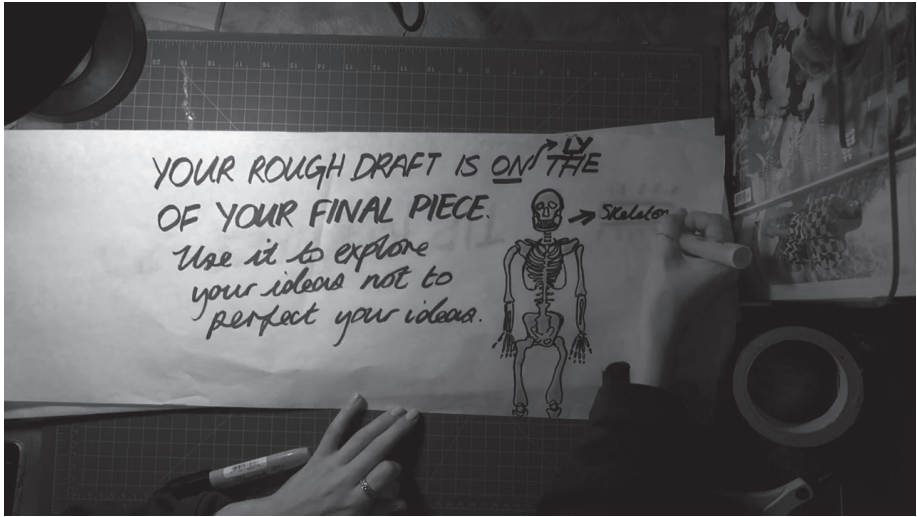 YOUR ROUGH DRAFT IS ON LY THE
OF YOUR FINAL PIECE.
Skeleton
Use it to explore
your ideas not to
perfect your ideas.